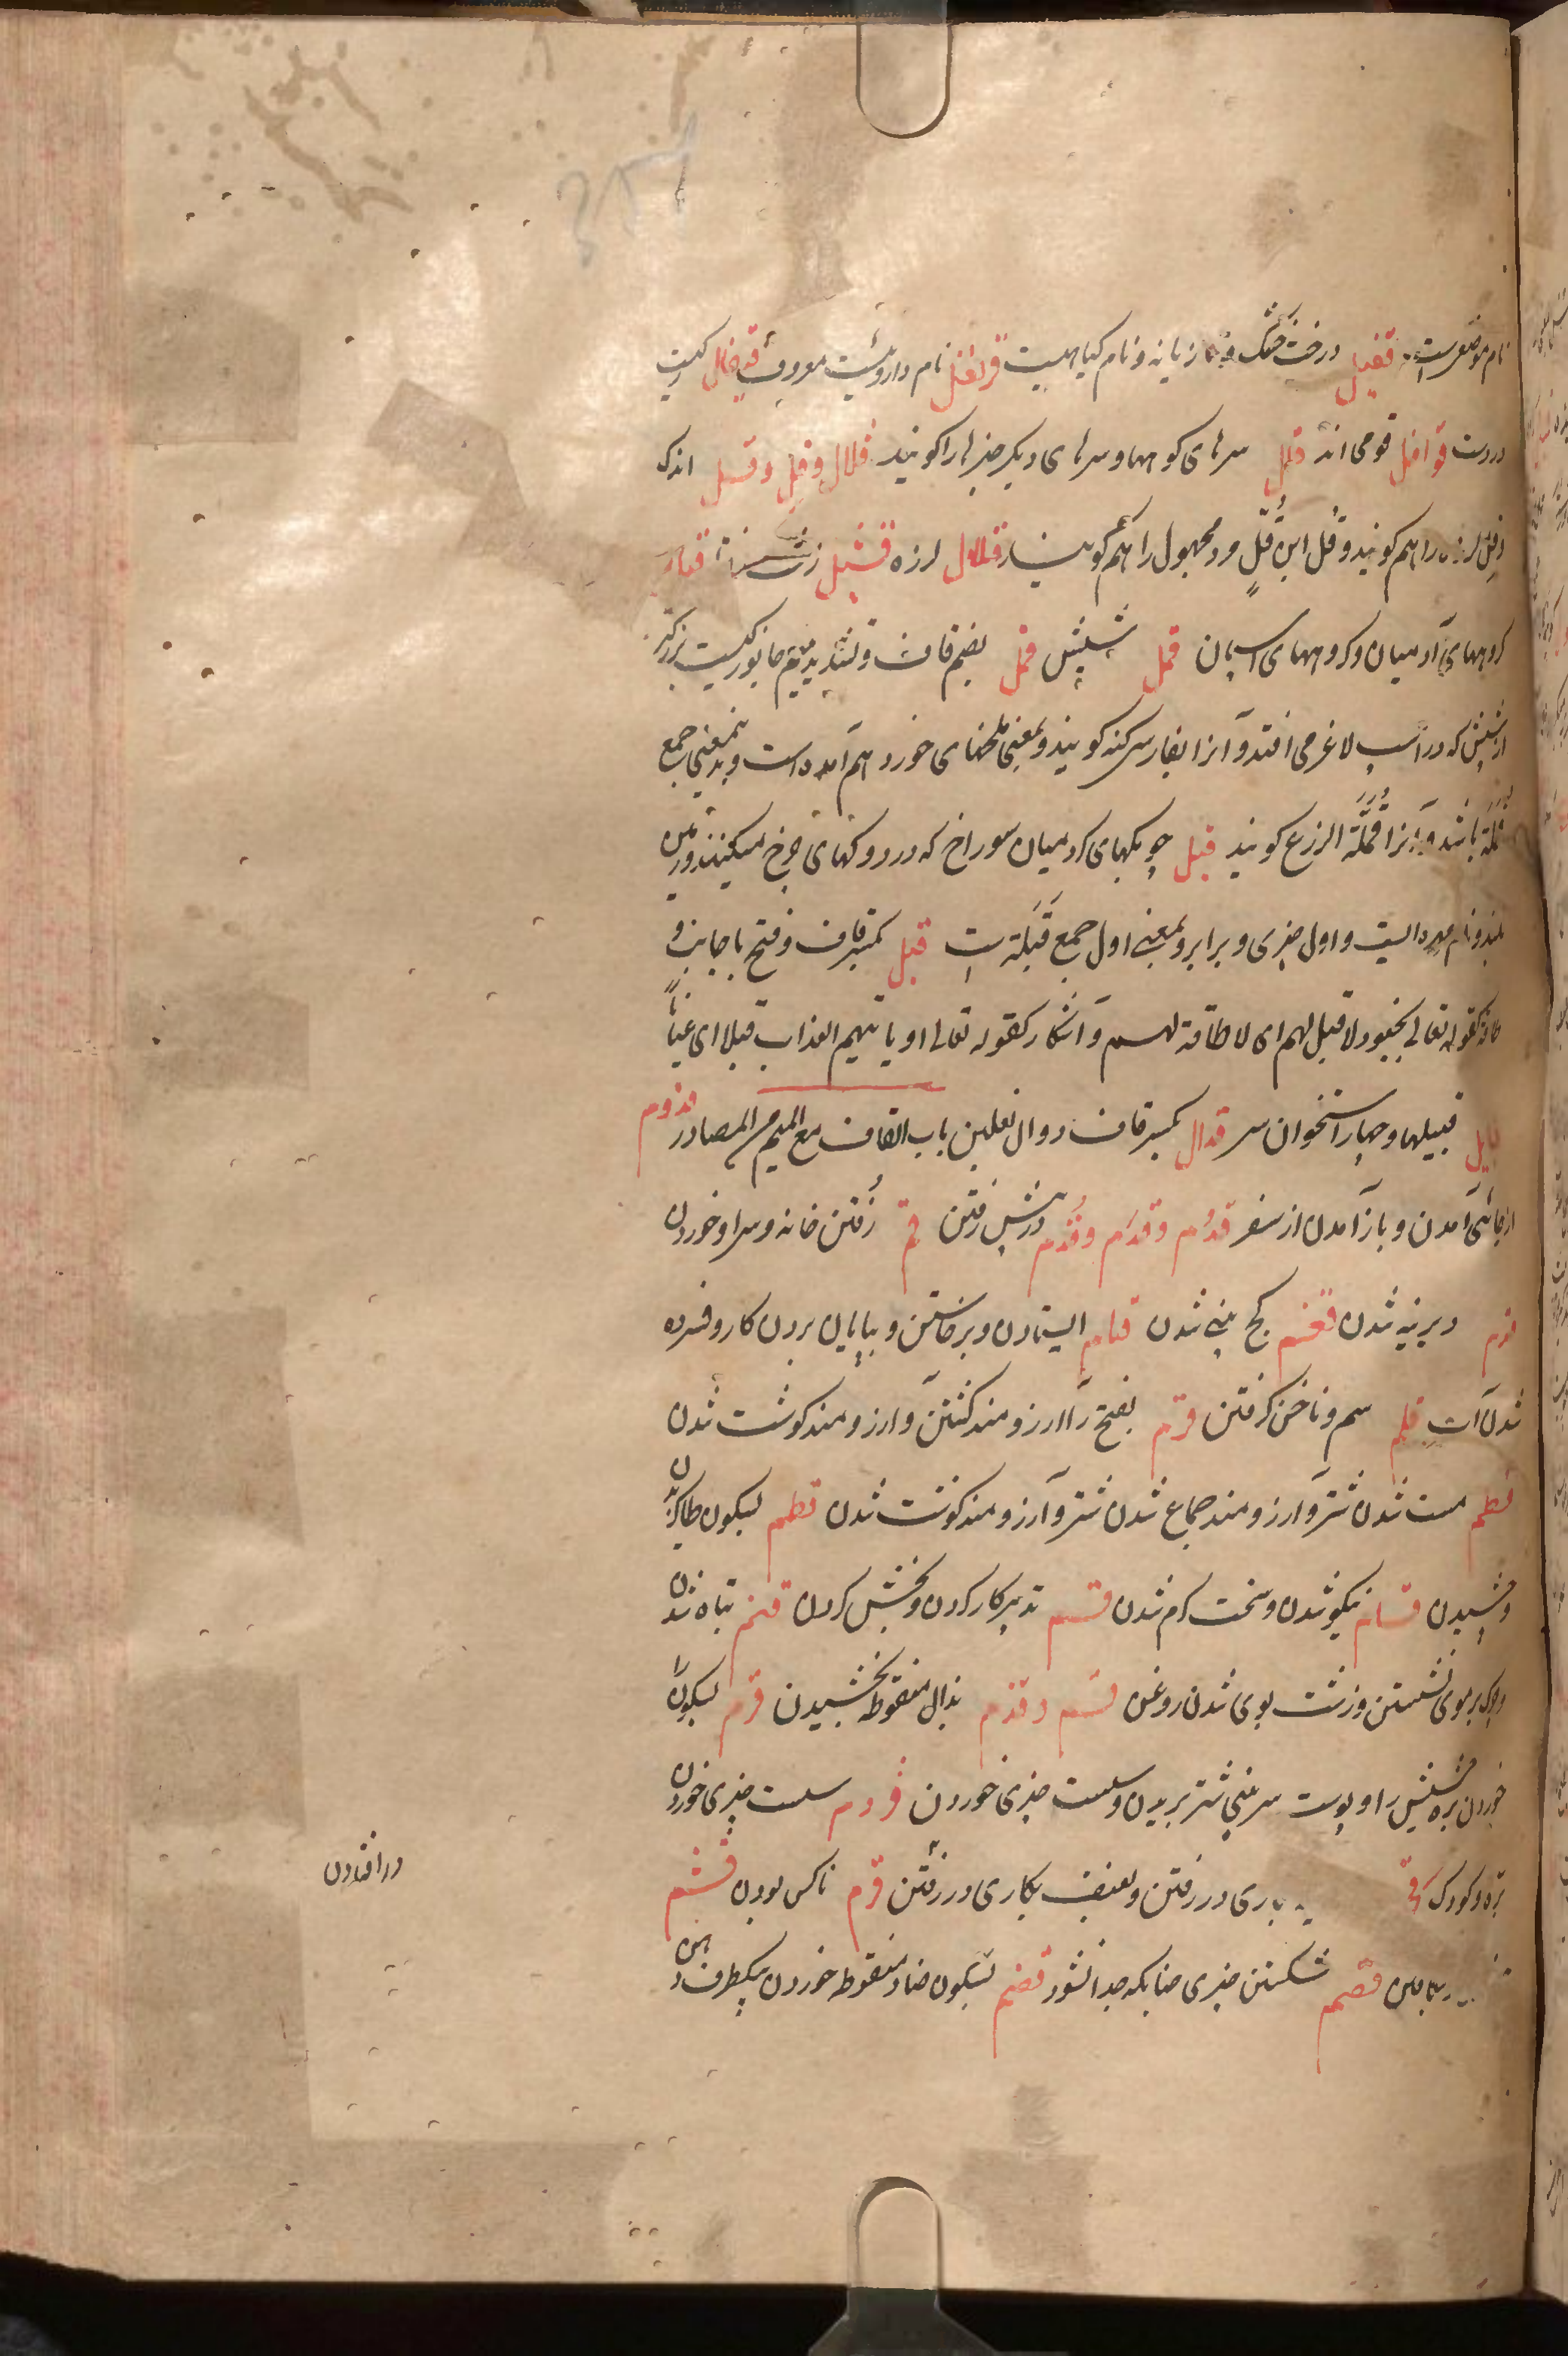 نام موضعیست قفیل درخت خشک و تازیانه و نام کیاهیست قرنفل نام داروئیست معروف قیفال رکیست
در دست قوافل قومی اند قلل سرهای کوهها و سرهای دیکر چیزها را کویند قلال و قل و قلیل اندک
و قل لرزه را هم کویند و قل ابن قل مرد مجهول را هم کویند قلال لرزه
کروههای آدمیان و کروههای اسپان قمل شپش قمل بضم قاف و تشدید میم جانوریست بزرکتر
از شپش که در اسپ لاغر می افتد و آنرا بفارسی کنه کویند و بمعنی ملخهای خورد هم آمده است و بدینمعنی جمع
قملة باشد و آنرا قملة الزرع کویند قبل چوبکهای کرد میان سوراخ که در دوکهای چرخ میکنند و زمین
بلند و نام مهره ایست و اول چیزی و برابر و بمعنی اول جمع قبلة است قبل بکسر قاف و فتح با جانب و
طاقة کقوله تعالی بجنود لا قبل لهم ای لا طاقة لهم و آشکار کقوله تعالی او یاتیهم العذاب قبلا ای عیانا
قبایل قبیلها و چهار استخوان سر قذال بکسر قاف دوال نعلین باب القاف مع المیم من المصادر قدوم
از جائی آمدن و باز آمدن از سفر قدم و قدم و قدم در پیش رفتن قم رفتن خانه و سرا و خوردن
قدم دیرینه شدن قعم کج بینی شدن قیام ایستادن و برخاستن و بپایان بردن کار و فسرده
شدن آب قلم سم و ناخن کرفتن قرم بفتح را آرزومند کشتن و ارزومند کوشت شدن
قطم مست شدن شتر و ارزومند جماع شدن شتر و آرزومند کوشت شدن قطم بسکون طا کزیدن
و چشیدن قسام نیکو شدن و سخت کرم شدن قسم تدبیر کار کردن و بخش کردن قنم تباه شدن
و چرک بر موی نشستن و زشت بوی شدن روغن قثم و قذم بذال منقوطه بخشیدن قرم بسکون را
خوردن بره شپش را و پوست سر بینی شتر بریدن و سست چیزی خوردن قروم سست چیزی خوردن
بره و کودک در رفتن و بعنف بکاری در رفتن قزم ناکس بودن قشم
در افتادن
قصم شکستن چیزی چنانکه جدا نشود قضم بسکون ضاد منقوطه خوردن بیکطرف دهن